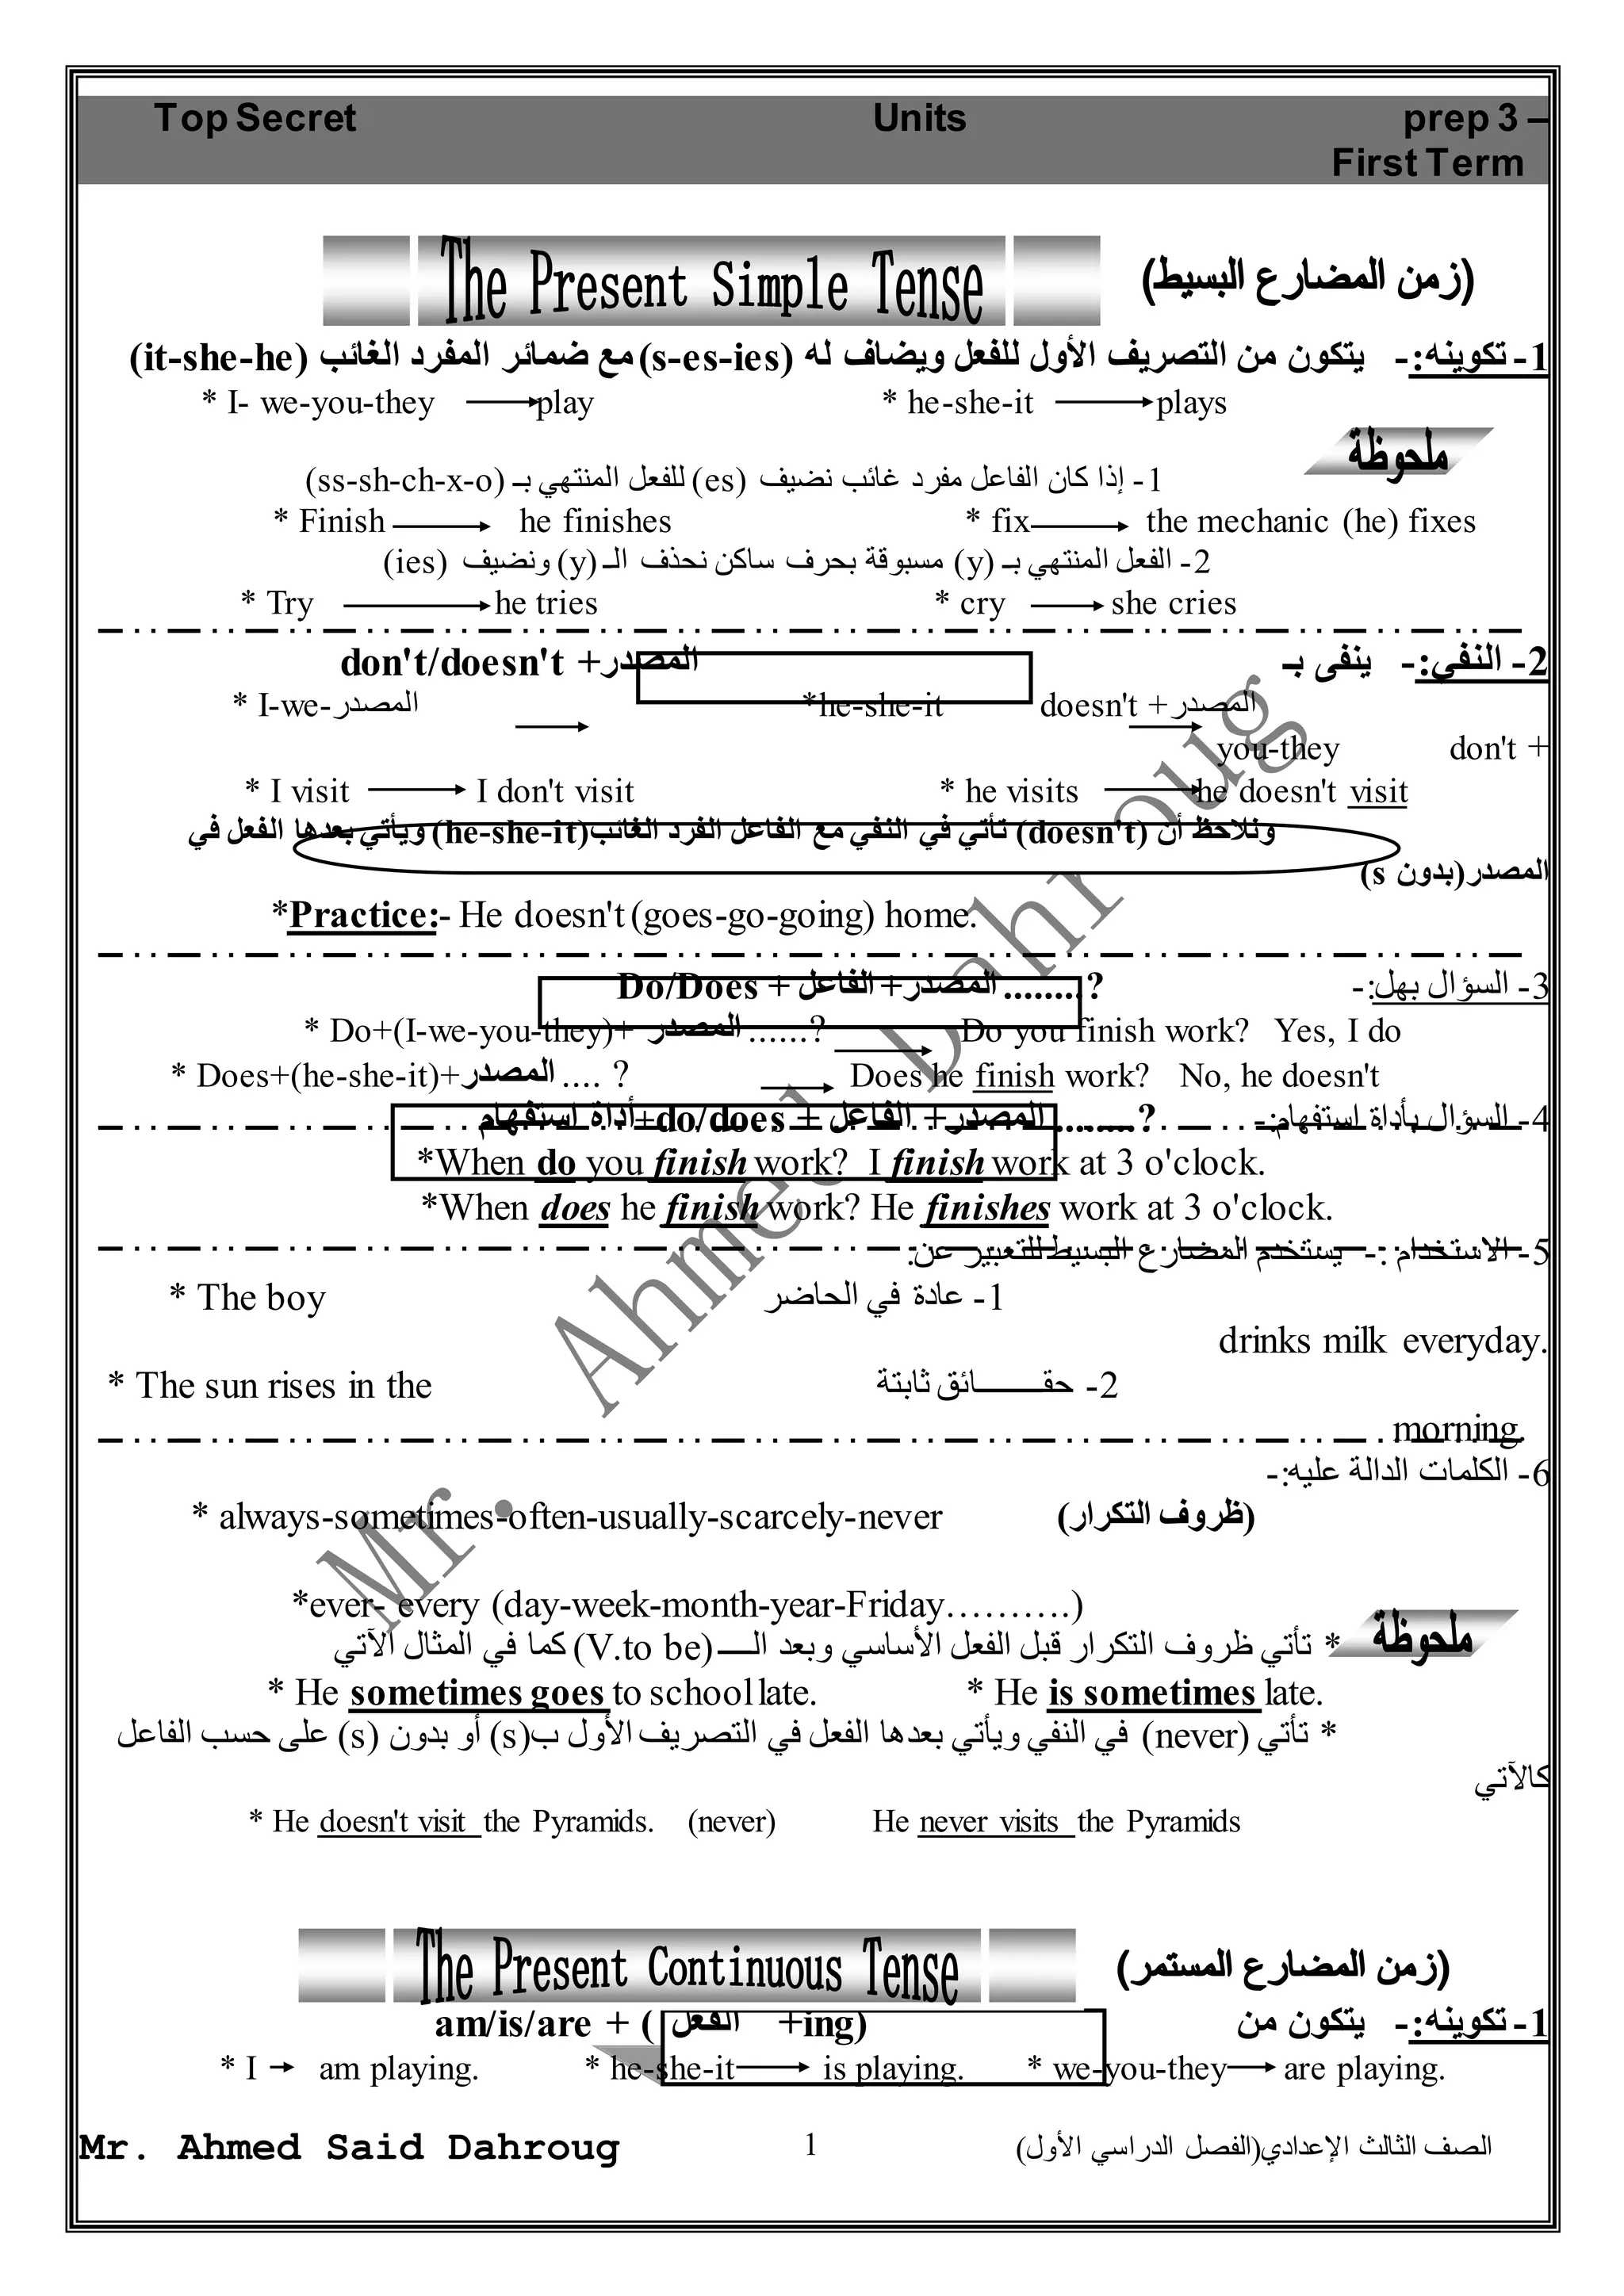 Top Secret Units prep 3 –
First Term
The Present Simple Tense (زمن المضارع البسيط)
1- تكوينه:- يتكون من التصريف الأول للفعل ويضاف له (s-es-ies) مع ضمائر المفرد الغائب (it-she-he)
* I- we-you-they play * he-she-it plays
ملحوظة
1- إذا كان الفاعل مفرد غائب نضيف (es) للفعل المنتهي بـ (ss-sh-ch-x-o)
* Finish he finishes * fix the mechanic (he) fixes
2- الفعل المنتهي بـ (y) مسبوقة بحرف ساكن نحذف الـ (y) ونضيف (ies)
* Try he tries * cry she cries
2- النفي:- ينفى بـ don't/doesn't +المصدر
* I-we-المصدر *he-she-it doesn't +المصدر
you-they don't +
* I visit I don't visit * he visits he doesn't visit
ونلاحظ أن (doesn't) تأتي في النفي مع الفاعل الفرد الغائب(he-she-it) ويأتي بعدها الفعل في
المصدر(بدون s)
*Practice:- He doesn't (goes-go-going) home.
3- السؤال بهل:- Do/Does + المصدر+ الفاعل ........?
* Do+(I-we-you-they)+ المصدر ......? Do you finish work? Yes, I do
* Does+(he-she-it)+المصدر .... ? Does he finish work? No, he doesn't
4- السؤال بأداة استفهام:- أداة استفهام+do/does + المصدر+ الفاعل ........?
*When do you finish work? I finish work at 3 o'clock.
*When does he finish work? He finishes work at 3 o'clock.
5- الاستخدام :- يستخدم المضارع البسيط للتعبير عن:
* The boy 1- عادة في الحاضر
drinks milk everyday.
* The sun rises in the 2- حقـــــــائق ثابتة
morning.
6- الكلمات الدالة عليه:-
* always-sometimes-often-usually-scarcely-never (ظروف التكرار)
*ever- every (day-week-month-year-Friday……….)
ملحوظة
* تأتي ظروف التكرار قبل الفعل الأساسي وبعد الــــ (V.to be) كما في المثال الآتي
* He sometimes goes to school late. * He is sometimes late.
* تأتي (never) في النفي ويأتي بعدها الفعل في التصريف الأول ب(s) أو بدون (s) على حسب الفاعل
كالآتي
* He doesn't visit the Pyramids. (never) He never visits the Pyramids
The Present Continuous Tense (زمن المضارع المستمر)
1- تكوينه:- يتكون من am/is/are + ( الفعل +ing)
* I am playing. * he-she-it is playing. * we-you-they are playing.
Mr. Ahmed Said Dahroug 1 الصف الثالث الإعدادي(الفصل الدراسي الأول)
Mr. Ahmed Dahroug